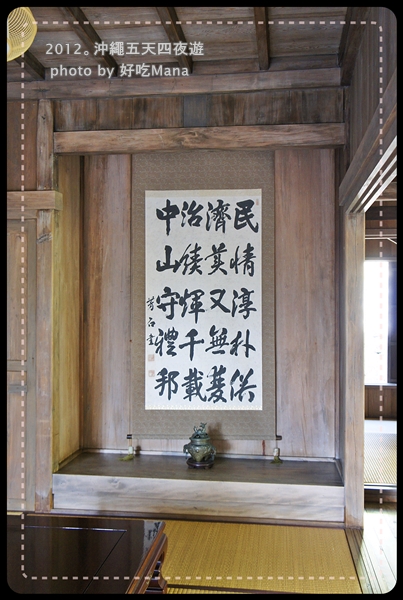 2012。沖繩五天四夜遊
photo by 好吃Mana
民情淳朴供
濟美又無憂
治績輝千載
中山守禮邦